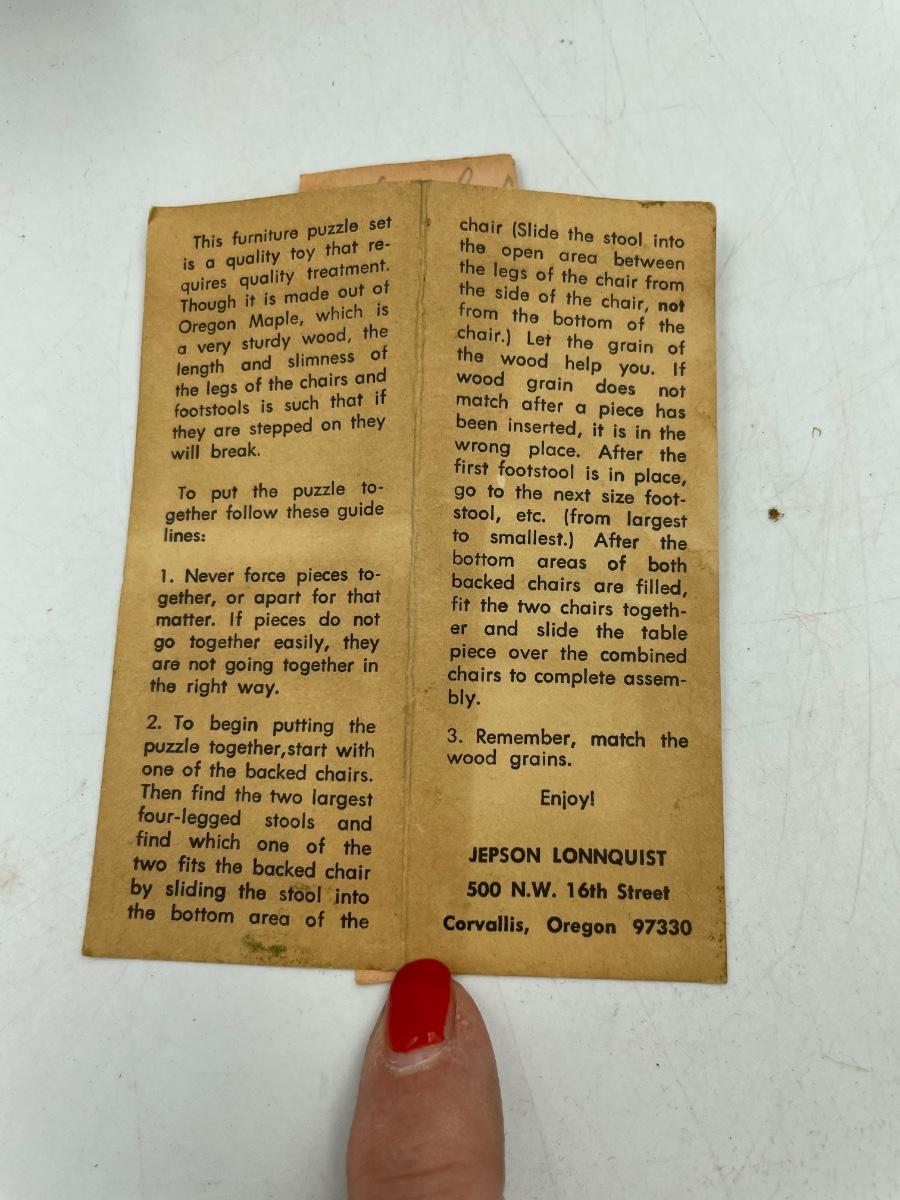 This furniture puzzle set
is a quality toy that re-
quires quality treatment.
Though it is made out of
Oregon Maple, which is
a very sturdy wood, the
length and slimness of
the legs of the chairs and
footstools is such that if
they are stepped on they
will break.
To put the puzzle to-
gether follow these guide
lines:
1. Never force pieces to-
gether, or apart for that
matter. If pieces do not
go together easily, they
are not going together in
the right way.
2. To begin putting the
puzzle together,start with
one of the backed chairs.
Then find the two largest
four-legged stools and
find which one of the
two fits the backed chair
by sliding the stool into
the bottom area of the
chair (Slide the stool into
the open area between
the legs of the chair from
the side of the chair, not
from the bottom of the
chair.) Let the grain of
the wood help you. If
wood grain does not
match after a piece has
been inserted, it is in the
wrong place. After the
first footstool is in place,
go to the next size foot-
stool, etc. (from largest
to smallest.) After the
bottom areas of both
backed chairs are filled,
fit the two chairs togeth-
er and slide the table
piece over the combined
chairs to complete assem-
bly.
3. Remember, match the
wood grains.
Enjoy!
JEPSON LONNQUIST
500 N.W. 16th Street
Corvallis, Oregon 97330